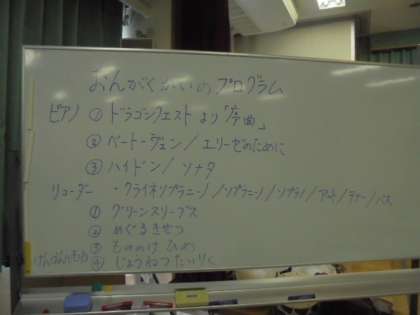 おんがくかいのプログラム
ピアノ ① ドラゴンクエストより「序曲」
② ベートーヴェン/エリーゼのために
③ ハイドン/ソナタ
リコーダー ・クライネソプラニーノ/ソプラニーノ/ソプラノ/アルト/テナー/バス
① グリーンスリーブス
② めぐるきせつ
③ もののけひめ
④ じょうねつたいりく